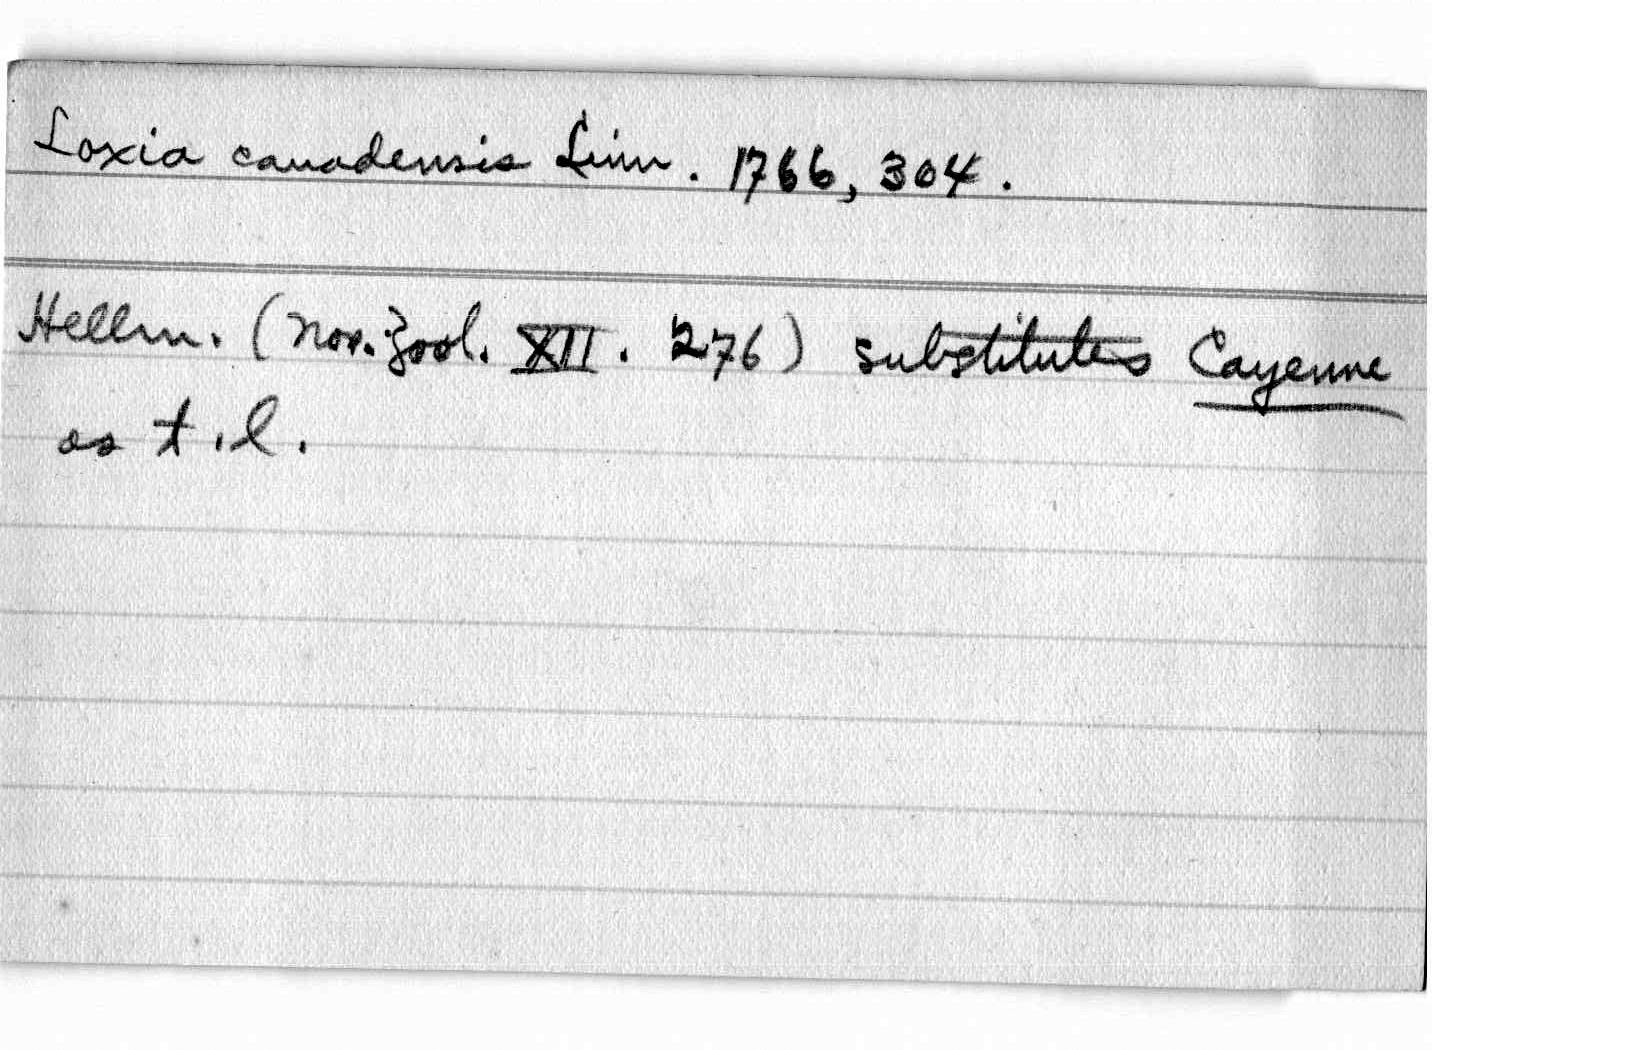 Loxia canadensis Linn. 1766, 304.
Hellm. (Nov. Zool. XII. 276) substitutes Cayenne
as t.l.